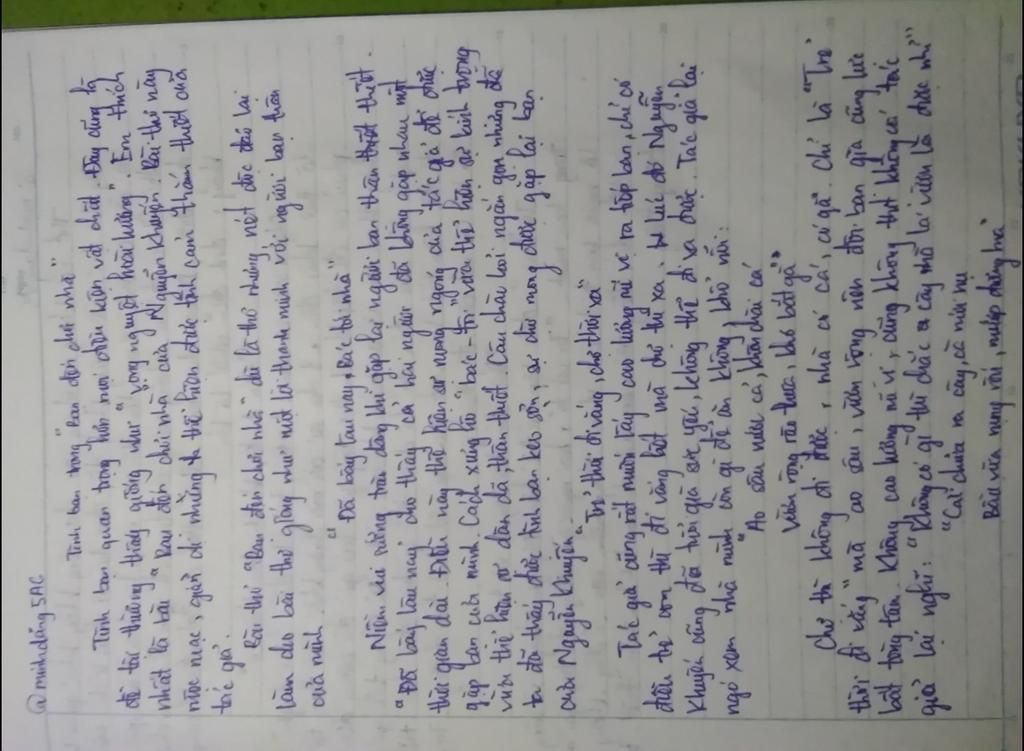 @minhdang5AC
Tình bạn trong "Bạn đến chơi nhà"
Tình bạn quan trọng hơn mọi điều kiện vật chất. Đây cũng là
đề tài thường thấy giống như "vọng nguyệt hoài hương". Em thích
nhất là bài "Bạn đến chơi nhà của Nguyễn Khuyến. Bài thơ này
mộc mạc, giản dị nhưng thể hiện được tình cảm thắm thiết của
tác giả.
Bài thơ "Bạn đến chơi nhà" dù là thơ nhưng nét độc đáo lại
làm cho bài thơ giống như một lời thanh minh với người bạn thân
của mình.
"Đã bấy lâu nay, bác tới nhà"
Niềm vui sướng trào dâng khi gặp lại người bạn thân thiết.
"Đã bấy lâu nay" cho thấy cả hai người đã không gặp nhau một
thời gian dài. Điều này thể hiện sự mong ngóng của tác giả để được
gặp bạn của mình. Cách xưng hô "bác - tôi" vừa thể hiện sự kính trọng
vừa thể hiện sự dân dã, thân thiết. Câu chào hỏi ngắn gọn nhưng đã
ta đã thấy được tình bạn keo sơn, sự chờ mong được gặp lại bạn
của Nguyễn Khuyến.
"Trẻ thời đi vắng, chợ thời xa"
Tác giả cũng rất muốn lấy cao lương mĩ vị ra tiếp bạn, chỉ có
điều trẻ con thì đi vắng hết mà chợ thì xa. Lúc đó Nguyễn
Khuyến cũng đã tuổi già sức yếu, không thể đi xa được. Tác giả lại
ngó xem nhà mình còn gì để ăn không, khổ nỗi:
"Ao sâu nước cả, khôn chài cá
Vườn rộng rào thưa, khó đuổi gà"
Chợ thì không đi được, nhà có cá, có gà. Chỉ là "Trẻ
thời đi vắng" mà ao sâu, vườn rộng nên đôi bạn già cũng lực
bất tòng tâm. Không cao lương mĩ vị, cũng không thịt không cá tác
giả lại nghĩ: "Không có gì thì chắc cây nhà lá vườn là được nhỉ"
"Cải chửa ra cây, cà mới nụ
Bầu vừa rụng rốn, mướp đương hoa"